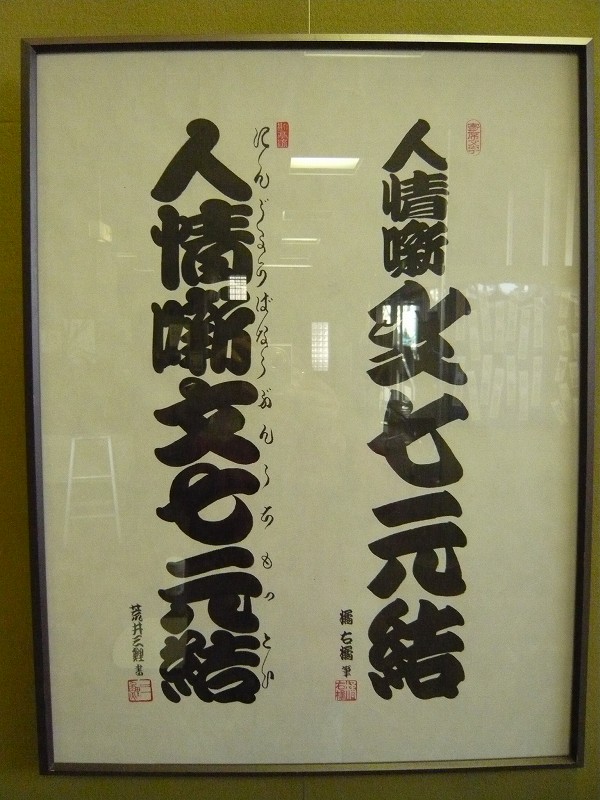 人情噺 文七元結
橘右橘 筆
にんじょうばなしぶんしちもっとい
人情噺文七元結
荒井三鯉 書